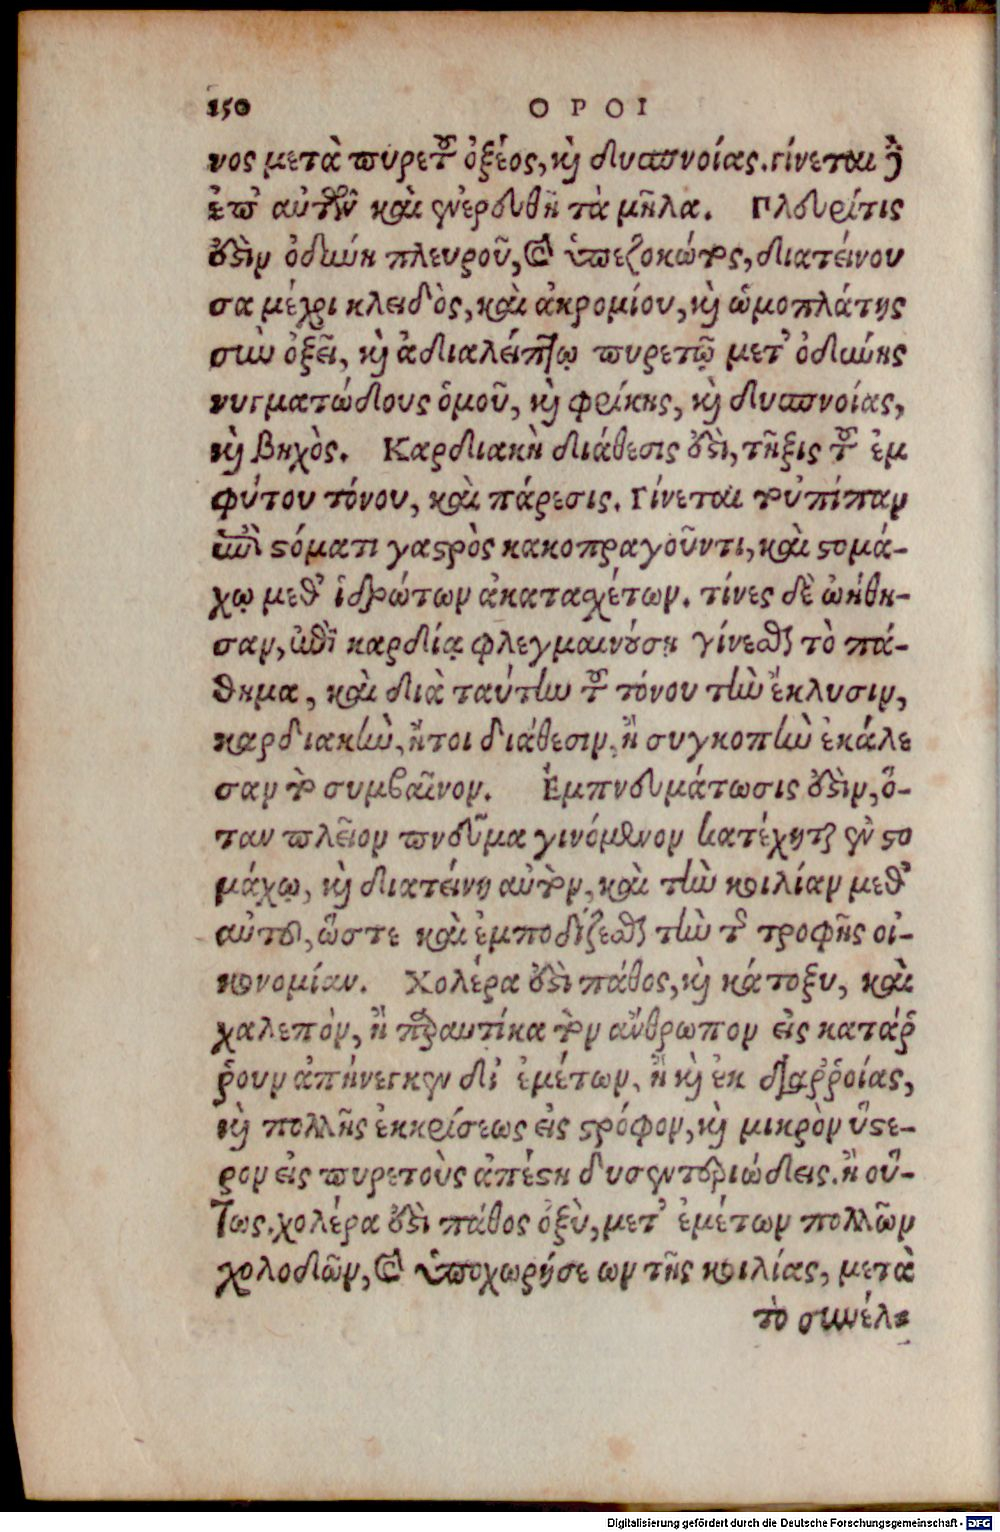 150 ΟΡΟΙ
νος μετὰ πυρετοῦ ὀξέος, καὶ δυσπνοίας. γίνεται δὲ
ἐπ' αὐτῶν καὶ ἐνερευθῆ τὰ μῆλα. Πλευρίτις
ἐστὶν ὀδύνη πλευροῦ, καὶ ὑπεζοκότος, διατείνου
σα μέχρι κλειδὸς, καὶ ἀκρομίου, καὶ ὠμοπλάτης
σὺν ὀξεῖ, καὶ ἀδιαλείπτῳ πυρετῷ μετ' ὀδύνης
νυγματώδους ὁμοῦ, καὶ φρίκης, καὶ δυσπνοίας,
καὶ βηχὸς. Καρδιακὴ διάθεσις ἐστὶ, τῆξις τοῦ ἐμ
φύτου τόνου, καὶ πάρεσις. Γίνεται τοὐπίπαν
ἐπὶ στόματι γαστρὸς κακοπραγοῦντι, καὶ στομά-
χῳ μεθ' ἱδρώτων ἀκατασχέτων. τίνες δὲ ὠήθη-
σαν, ἐπὶ καρδίᾳ φλεγμαινούσῃ γίνεσθαι τὸ πά-
θημα, καὶ διὰ ταύτην τοῦ τόνου τὴν ἔκλυσιν,
καρδιακὴν, ἤτοι διάθεσιν, ἢ συγκοπὴν ἐκάλε
σαν τὸ συμβαῖνον. Ἐμπνευμάτωσις ἐστὶν, ὅ-
ταν πλεῖον πνεῦμα γινόμενον κατέχηται ἐν στο
μάχῳ, καὶ διατείνῃ αὐτὸν, καὶ τὴν κοιλίαν μεθ'
αὐτοῦ, ὥστε καὶ ἐμποδίζεσθαι τὴν τῆς τροφῆς οἰ-
κονομίαν. Χολέρα ἐστὶ πάθος, καὶ κάτοξυ, καὶ
χαλεπὸν, ἢ παραυτίκα τὸν ἄνθρωπον εἰς κατάῤ
ῥουν ἀπήνεγκεν δι' ἐμέτων, ἢ καὶ ἐκ διαῤῥοίας,
καὶ πολλῆς ἐκκρίσεως εἰς στρόφον, καὶ μικρὸν ὕστε-
ρον εἰς πυρετοὺς ἀπέστη δυσεντεριώδεις. ἢ οὕ-
τως. χολέρα ἐστὶ πάθος ὀξὺ, μετ' ἐμέτων πολλῶν
χολοδῶν, καὶ ὑποχωρήσεων τῆς κοιλίας, μετὰ
τὸ συνέλ-
Digitalisierung gefördert durch die Deutsche Forschungsgemeinschaft - DFG